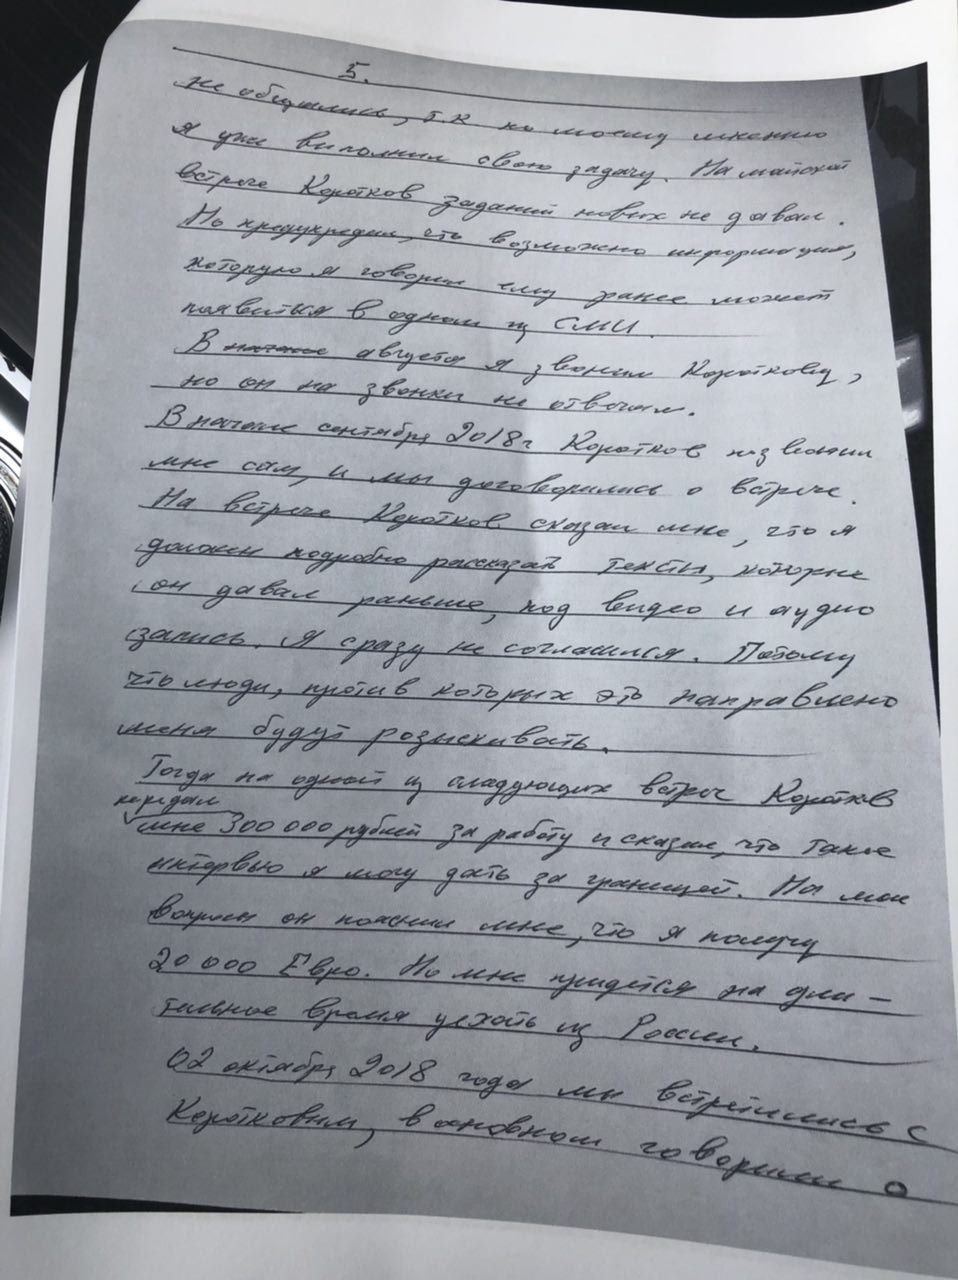 5.
не общались, т.к по моему мнению
я уже выполнил свою задачу. На майской
встрече Коротков заданий новых не давал.
Но предупредил, что возможно информация,
которую я говорил ему ранее может
появиться в одном из СМИ.
В начале августа я звонил Короткову,
но он на звонки не отвечал.
В начале сентября 2018г Коротков позвонил
мне сам, и мы договорились о встрече.
На встрече Коротков сказал мне, что я
должен подробно рассказать тексты, которые
он давал раньше, под видео и аудио
запись. Я сразу не согласился. Потому
что люди, против которых это направлено
меня будут розыскивать.
Тогда на одной из следующих встреч Коротков
передал
мне 300 000 рублей за работу и сказал, что такое
интервью я могу дать за границей. На мои
вопросы он пояснил мне, что я получу
20 000 Евро. Но мне придётся на дли-
тельное время уехать из России.
02 октября 2018 года мы встретились с
Коротковым, в основном говорили о